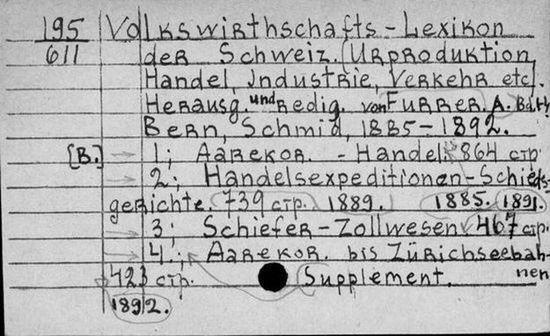 195 Volkswirthschafts-Lexikon
611 der Schweiz. (Urproduktion,
Handel, Industrie, Verkehr etc.)
Herausg. und redig. von Furrer, A. Bd. I-IV
Bern, Schmid, 1885-1892.
[B.] 1; Aarekor. - Handel. 864 стр.
2; Handelsexpeditionen-Schieds-
gerichte. 739 стр. 1889. 1885. 1891.
3; Schiefer-Zollwesen. 467 стр.
4.; Aarekor. bis Zürichseebah-
nen
423 стр. Supplement.
1892.